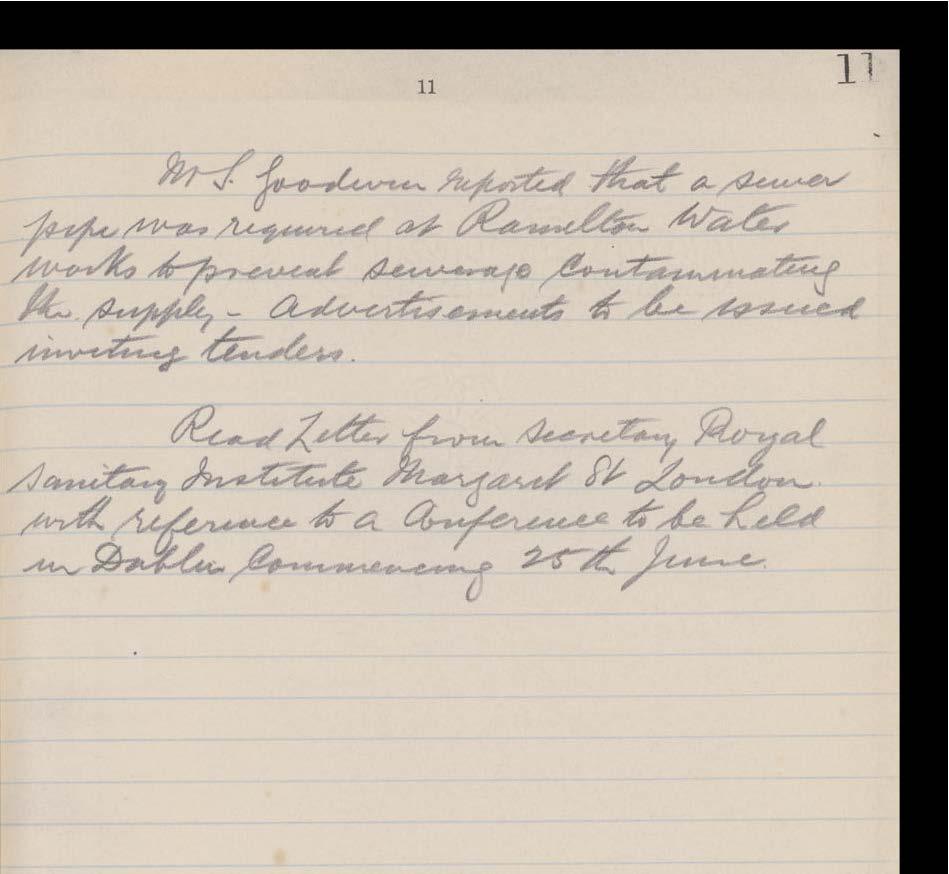 11
11
Mr S. Goodwin reported that a sewer
pipe was required at Ramelton Water
works to prevent sewerage contaminating
the supply - Advertisements to be issued
inviting tenders.
Read Letter from Secretary Royal
Sanitary Institute Margaret St London
with reference to a Conference to be held
in Dublin Commencing 25th June.